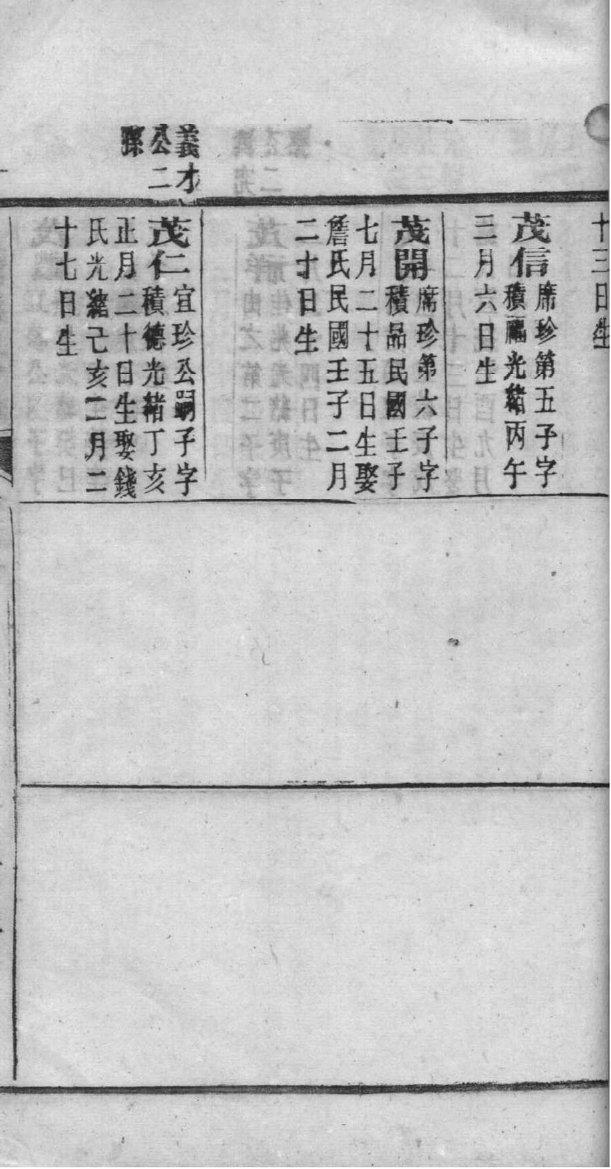 十三日生
茂信席珍第五子字
積福光緒丙午
三月六日生
茂開席珍第六子字
積品民國壬子
七月二十五日生娶
詹氏民國壬子二月
二十日生
義才
公二
孫
茂仁宜珍公嗣子字
積德光緒丁亥
正月二十日生娶錢
氏光緒己亥二月二
十七日生